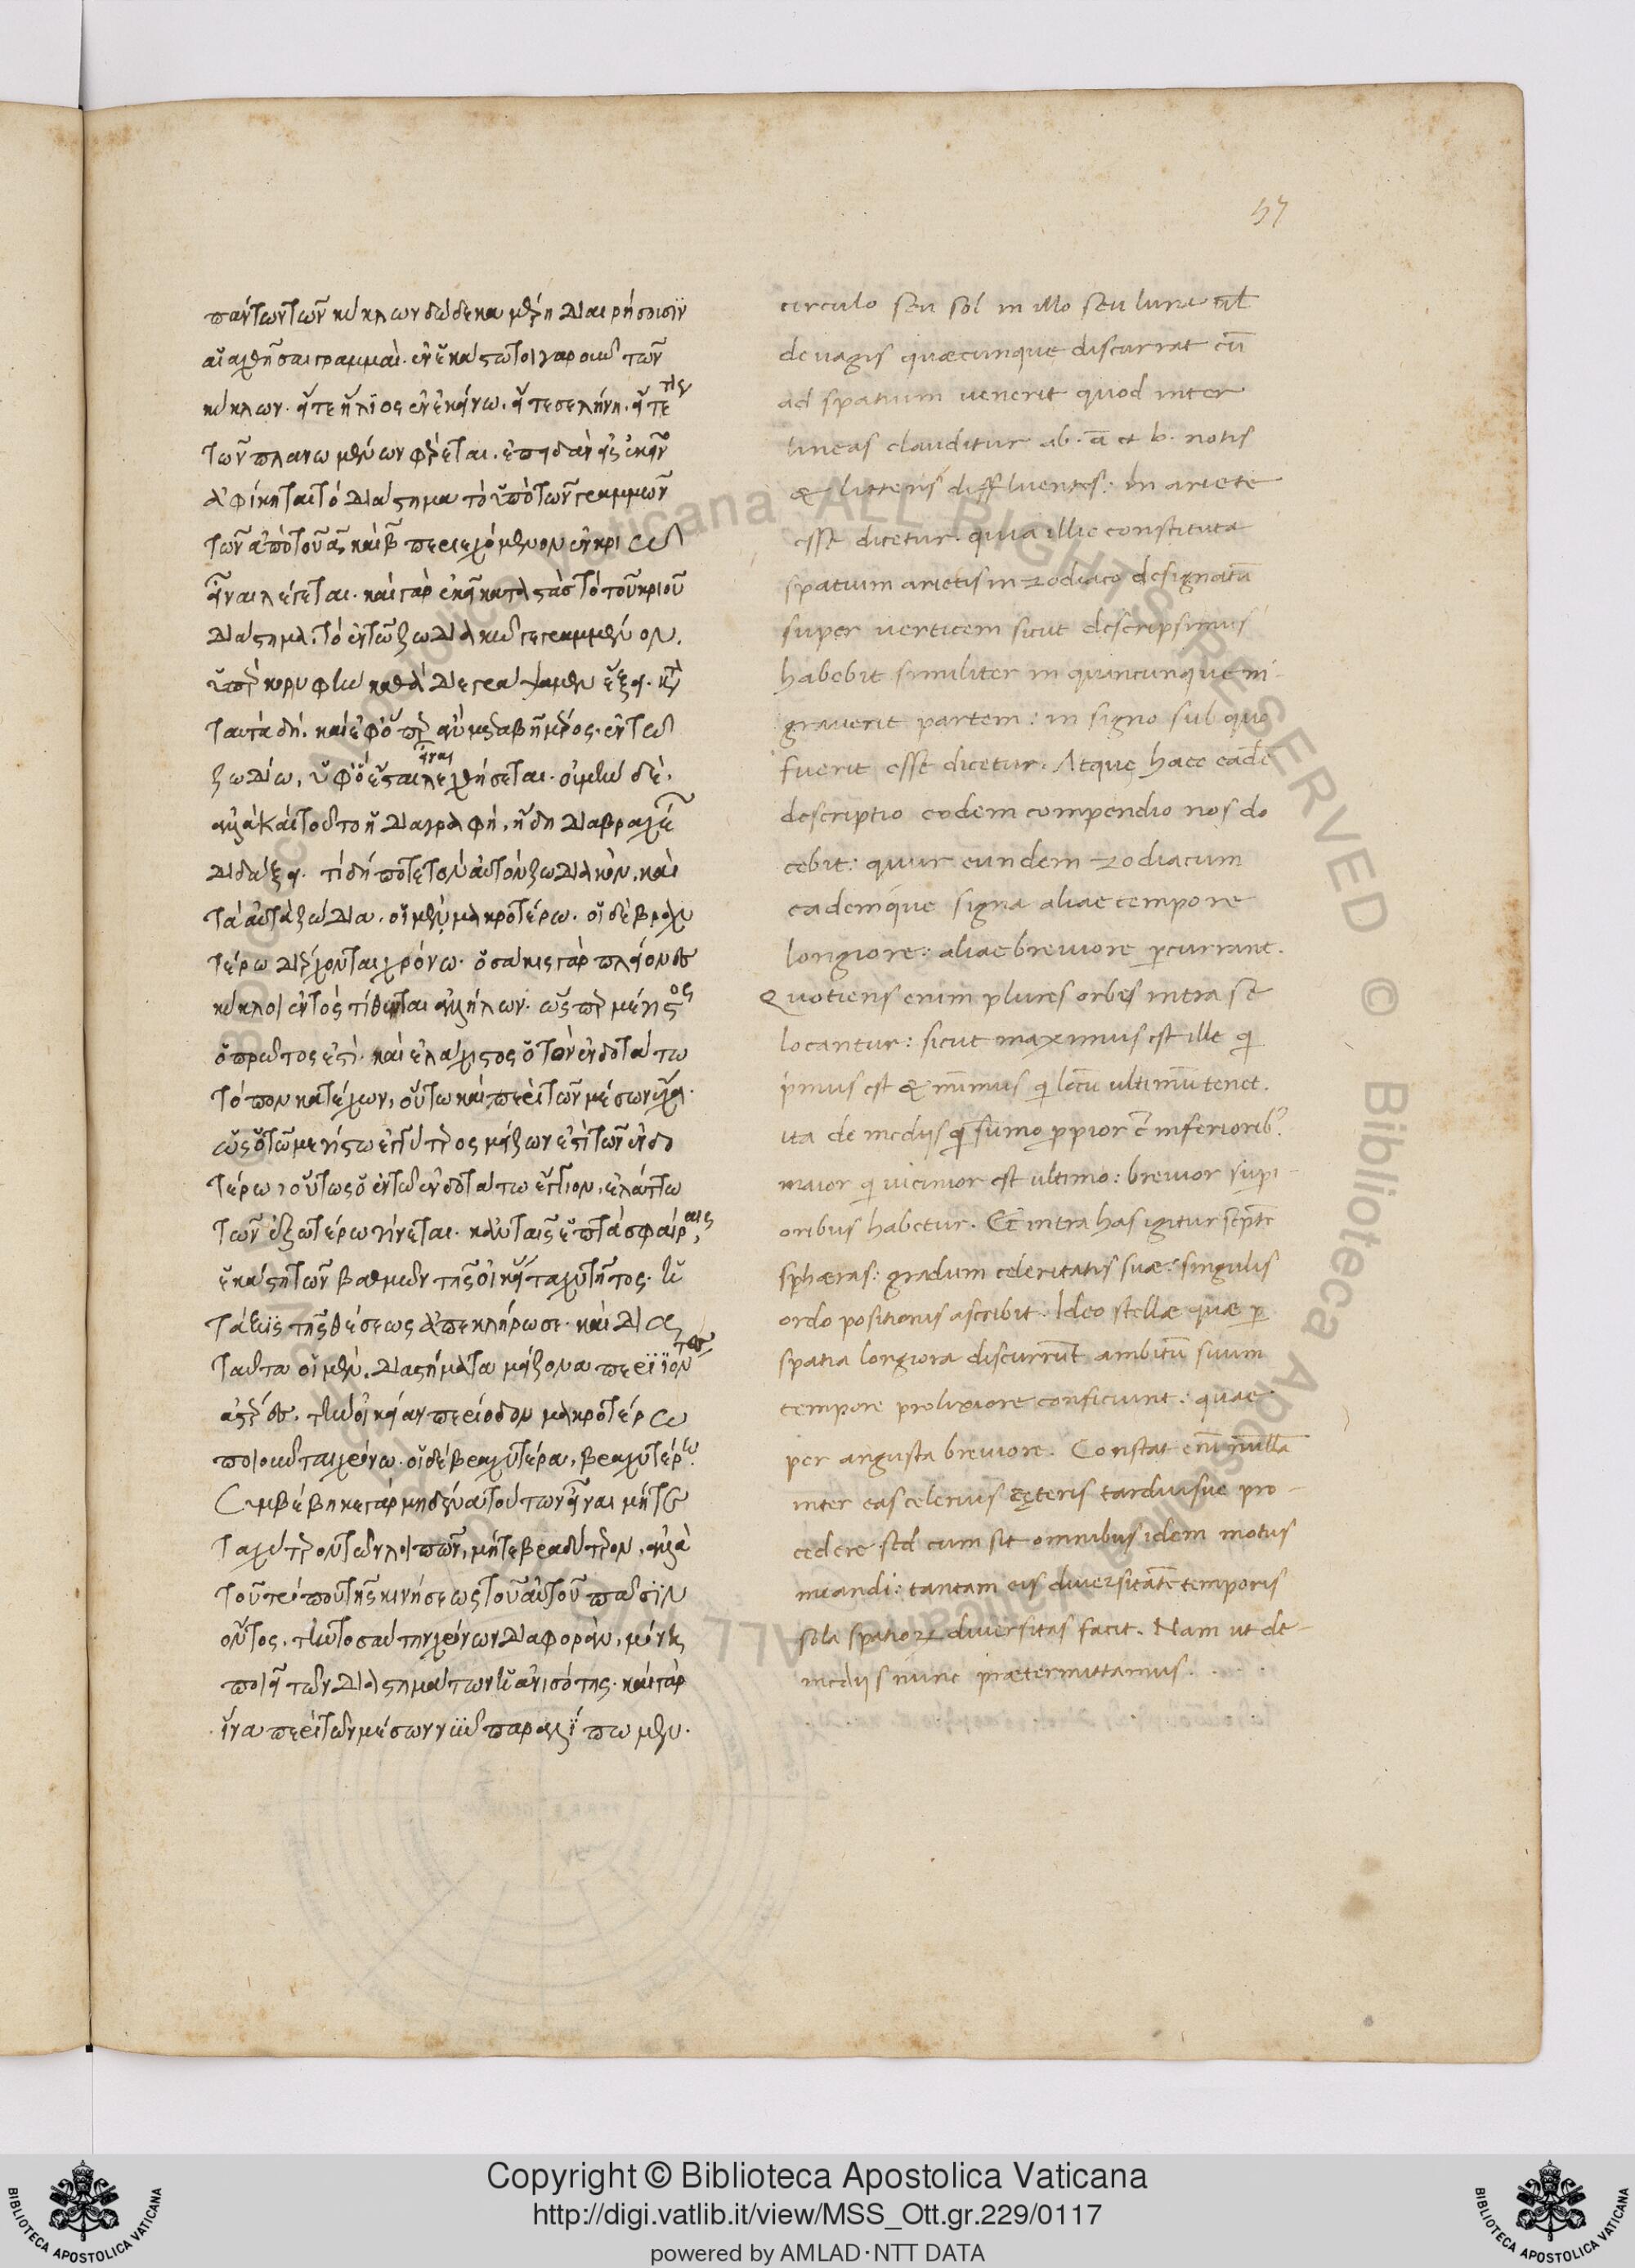 57
πάντων τῶν κύκλων δώδεκα μέρη διαιρήσουσϊν
αἱ ἀχθεῖσαι γραμμαί. ἐν ἑκάστω τοιγαροῦν τῶν
κύκλων. εἴτε ἥλιος ἐν ἐκείνω. εἴτε σελήνη. εἴτέ τις
τῶν πλανωμένων φέρεται. ἐπειδὰν εἰς ἐκεῖν
ἀφίκηται τὸ διάστημα τὸ ὑπὸ τῶν γραμμῶν
τῶν ἀπὸ τοῦ α, καὶ β περιεχόμενον ἐν κριῶ
εἶναι λέγεται. καὶ γὰρ ἐκεῖ καταστὰς τὸ τοῦ κριοῦ
διάστημα. τὸ ἐν τῶ ζωδιακῶ γεγραμμένον.
ὑπὲρ κορυφὴν καθὰ διεγράψαμεν ἕξει. κατὰ
ταυτὰ δή. καὶ ἐφ' ὅπερ ἂν μεταβῆ μέρος. ἐν τῶ
ζωδίω, ὑφ' ὃ ἔσται εἶναι λεχθήσεται. οὐ μὴν δὲ.
ἀλλὰ καὶ τοῦτο ἡ διαγραφή, ἤδη διαβραχέ
διδάξει. τί δήποτε τὸν αὐτὸν ζωδιακὸν. καὶ
τὰ αὐτὰ ζώδια. οἱ μὲν μακροτέρω. οἱ δὲ βραχυ
τέρω διέρχονται χρόνω. ὁσάκις γὰρ πλείονες
κύκλοι ἐντὸς τίθενται ἀλλήλων. ὥσπερ μέγιστος
ὁ πρῶτος ἐστὶ. καὶ ἐλάχιστος ὁ τὸν ἐνδοτάτω
τόπον κατέχων, οὕτω καὶ περὶ τῶν μέσων ἔχει.
ὡς ὁ τῶ μεγίστω ἐγγύτερος μείζων ἐστὶ τῶν ἐνδο
τέρω, οὕτως ὁ ἐν τῶ ἐνδοτάτω ἔγγιον, ἐλάττω
τῶν ἐξωτέρω γίνεται. κἀν ταῖς ἑπτὰ σφαίραις,
ἑκάστη τῶν βαθμῶν τῆς οἰκείας ταχυτῆτος. ἡ
τάξϊς τῆς θέσεως ἀπεκλήρωσε. καὶ διὰ
ταῦτα οἱ μὲν. διαστήματα μείζονα περιϊόντες
ἀστέρες. τὴν οἰκείαν περίοδον μακροτέρω
ποιοῦνται χρόνω. οἱ δὲ βραχύτερα, βραχυτέρω.
Συμβέβηκε γὰρ μηδένα τούτων εἶναι μήτε
ταχύτερον τῶν λοιπῶν, μήτε βραδύτερον, ἀλλὰ
τοῦ τρόπου τῆς κινήσεως τοῦ αὐτοῦ πᾶσϊν
ὄντος. τὴν τοσαύτην χρόνων διαφοράν, μόνη
ποιεῖ τῶν διαστημάτων ἡ ἀνισότης. καὶ γὰρ
ἵνα περὶ τῶν μέσων νῦν παραλείπωμεν.
circulo seu sol in illo seu luna ul̄
de vagis quæcunque discurrat cū
ad spatium uenerit quod inter
lineas clauditur ab. a et b. notis
& litteris diffluentes: in ariete
esse dicetur. quia illic constituta
spatium arietis in zodiaco designatū
super verticem sicut descripsimus
habebit similiter in quincunque mi-
graverit partem: in signo sub quo
fuerit esse dicetur. Atque haec eadē
descriptio eodem compendio nos do
cebit: quur eundem zodiacum
eademque signa aliae tempore
longiore: aliae breviore ꝑcurrant.
Quotiens enim plures orbes intra se
locantur: sicut maximus est ille q̄
p̄imus est & mīmus q̄ locū ultimū tenet.
ita de medijs q̄ sūmo ꝓpior ē inferiorib⁊
maior q̄ uicinior est ultimo: brevior supi-
oribus habetur. Et intra has igitur septē
sphæras: gradum celeritatis suæ: singulis
ordo positionis ascribit. Ideo stellæ quæ ꝑ
spatia longiora discurrūt ambitū suum
tempore prolixiore conficiunt: quae
per angusta breviore. Constat enī nullā
inter eas celerius cęteris tardiusve pro-
cedere sed cum sit omnibus idem motus
meandi: tantam eis diversitatē temporis
sola spatioꝝ diversitas facit. Nam ut de
medijs nunc prætermittamus.
Copyright © Biblioteca Apostolica Vaticana
http://digi.vatlib.it/view/MSS_Ott.gr.229/0117
powered by AMLAD·NTT DATA